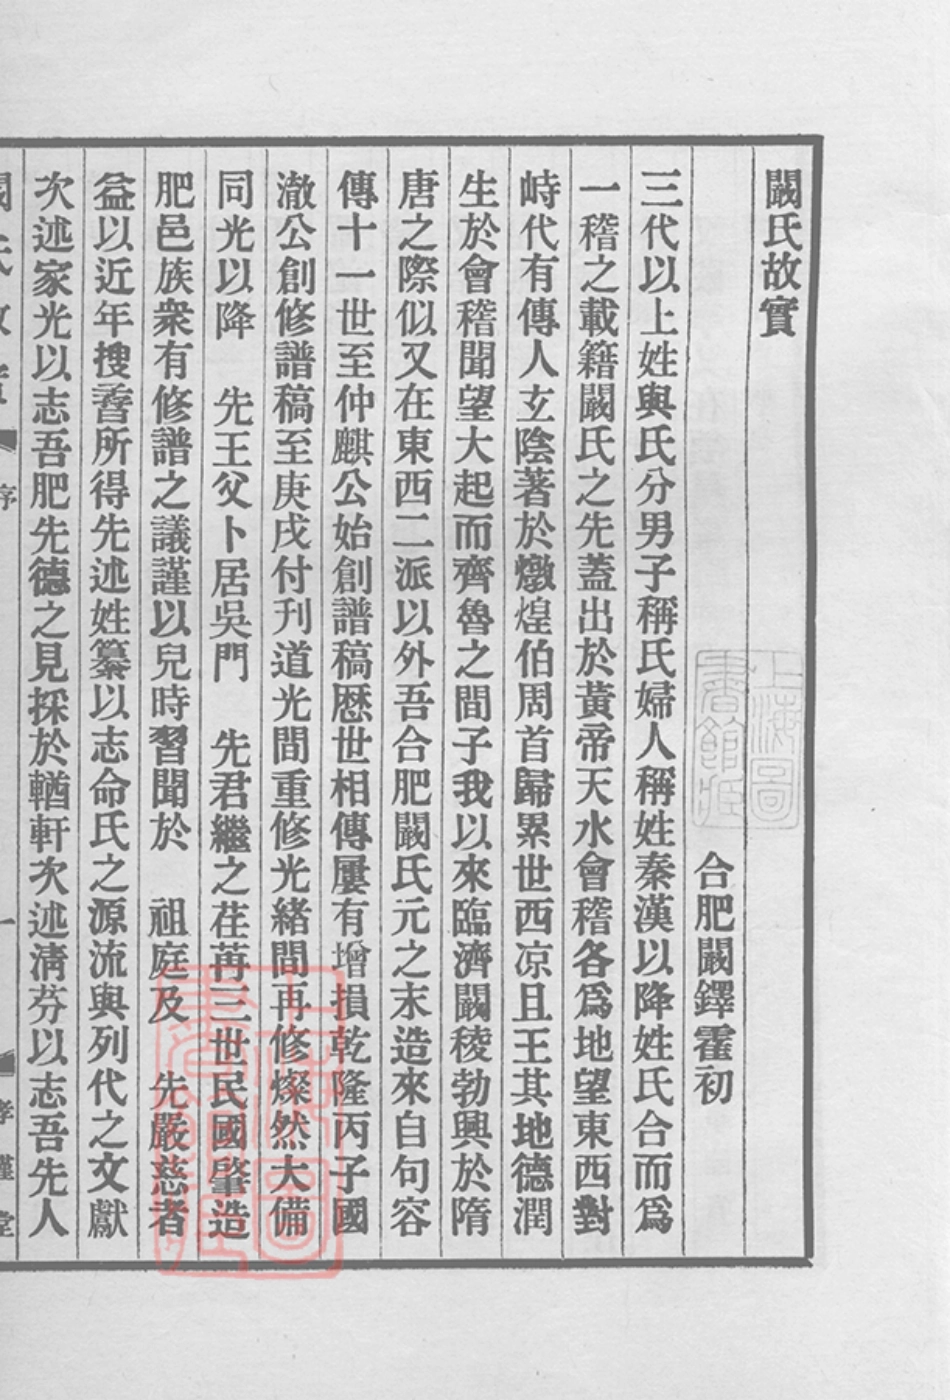 闞氏故實
合肥闞鐸霍初
三代以上姓與氏分男子稱氏婦人稱姓秦漢以降姓氏合而爲
一稽之載籍闞氏之先蓋出於黃帝天水會稽各爲地望東西對
峙代有傳人玄陰著於燉煌伯周首歸累世西凉且王其地德潤
生於會稽聞望大起而齊魯之間子我以來臨濟闞稜勃興於隋
唐之際似又在東西二派以外吾合肥闞氏元之末造來自句容
傳十一世至仲麒公始創譜稿歷世相傳屢有增損乾隆丙子國
澂公創修譜稿至庚戌付刊道光間重修光緒間再修燦然大備
同光以降　先王父卜居吳門　先君繼之荏苒三世民國肇造
肥邑族衆有修譜之議謹以兒時習聞於　祖庭及　先嚴慈者
益以近年搜書所得先述姓纂以志命氏之源流與列代之文獻
次述家光以志吾肥先德之見採於輶軒次述清芬以志吾先人
闞氏故實　序　一　孝謹堂
上海圖書館藏
上海圖書館藏